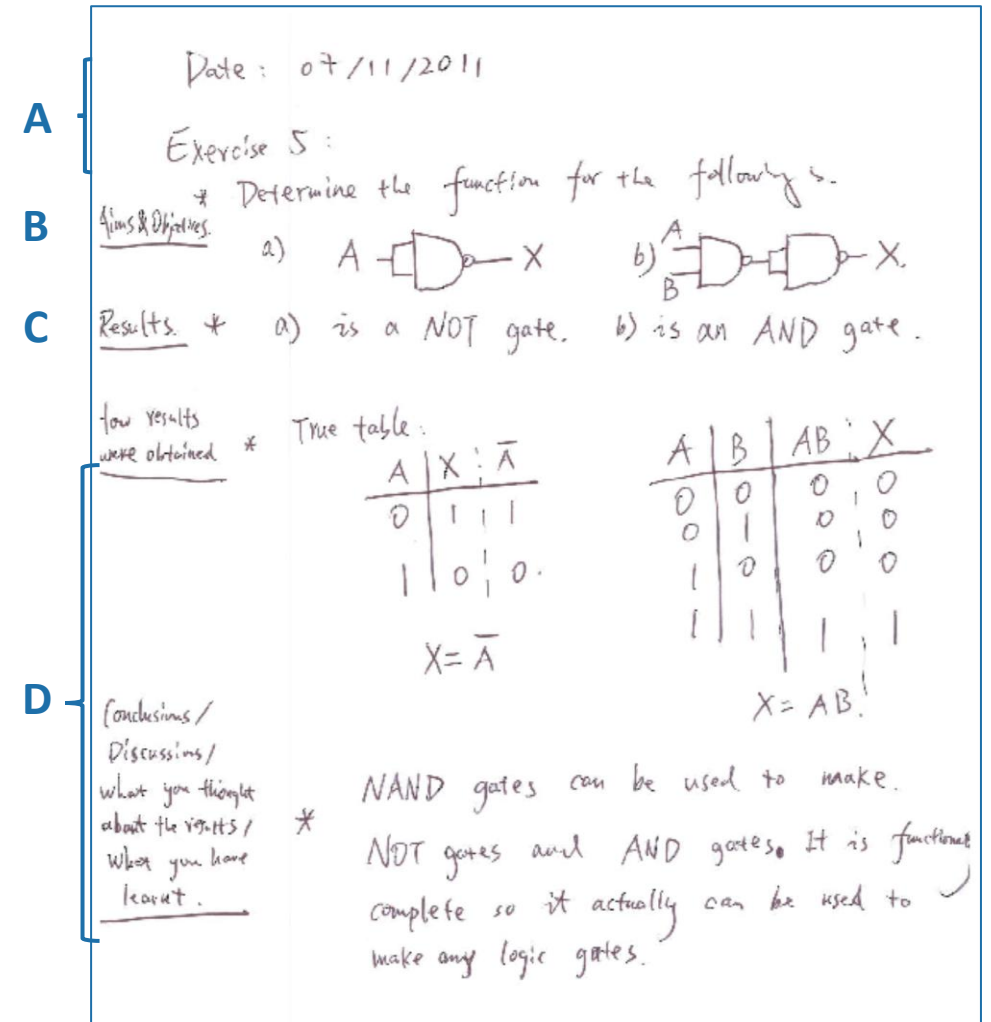 A
Date: 07/11/2011
Exercise 5:
* Determine the function for the following s.
B
Aims & Objectives.
a) A X b) A B X.
C
Results. * a) is a NOT gate. b) is an AND gate.
how results
were obtained * True table:
A X A̅
0 1 1
1 0 0.
X = A̅
A B AB X
0 0 0 0
0 1 0 0
1 0 0 0
1 1 1 1
X = AB.
D
Conclusions/
Discussions/
what you thought
about the results/
What you have
learnt.
* NAND gates can be used to make.
NOT gates and AND gates. It is functional
complete so it actually can be used to
make any logic gates.